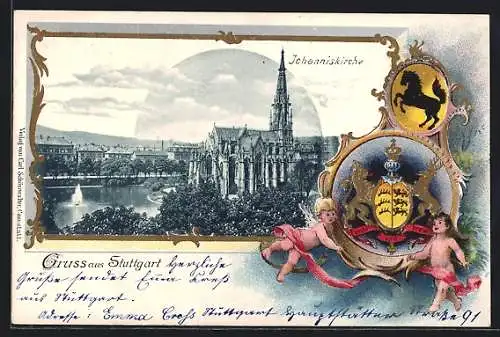 Johanniskirche
Verlag von Carl Schönwalter, Cannstatt.
Gruss aus Stuttgart Herzliche
Grüße sendet Emma
aus Stuttgart.
Adresse : Emma Stuttgart Hauptstätter Straße 91